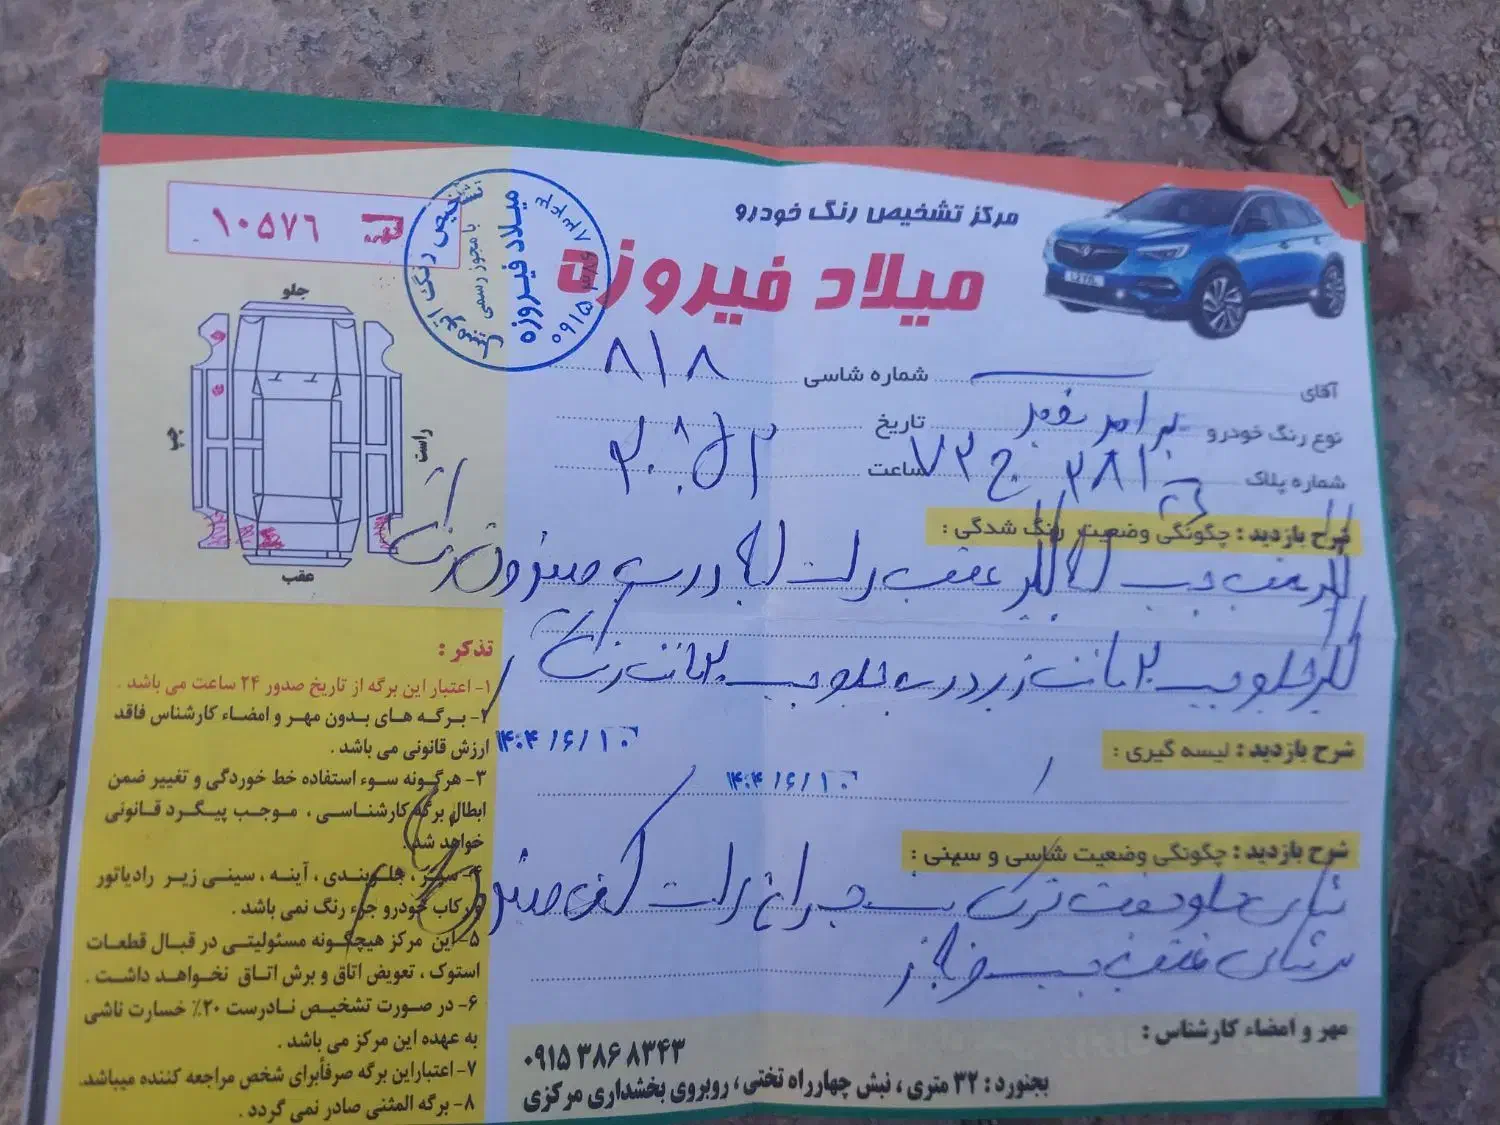 مرکز تشخیص رنگ خودرو
میلاد فیروزه
۱۰۵۷۶
تشخیص رنگ اتومبیل
با مجوز رسمی
میلاد فیروزه
۰۹۱۵ ۳۸۶ ۸۳۴۳
آقای
شماره شاسی ۸۱۸
نوع رنگ خودرو
تاریخ
شماره پلاک ۳۸۱ ج ۷۲
ساعت
جلو
چپ
راست
عقب
شرح بازدید : چگونگی وضعیت رنگ شدگی :
گلگیر عقب چپ گلگیر عقب راست درب صندوق رنگ
گلگیر جلو چپ ۲ سانت زیر درب جلو چپ ۲ سانت رنگ
۱۴۰۴/۶/۱۰
شرح بازدید : لیسه گیری :
۱۴۰۴/۶/۱۰
شرح بازدید : چگونگی وضعیت شاسی و سینی :
جلو جفت ترک پشت چراغ راست کف صندوق
عقب چپ
مهر و امضاء کارشناس :
۰۹۱۵ ۳۸۶ ۸۳۴۳
بجنورد : ۳۲ متری ، نبش چهارراه تختی ، روبروی بخشداری مرکزی
تذکر :
۱- اعتبار این برگه از تاریخ صدور ۲۴ ساعت می باشد .
۲- برگه های بدون مهر و امضاء کارشناس فاقد
ارزش قانونی می باشد .
۳- هرگونه سوء استفاده خط خوردگی و تغییر ضمن
ابطال برگه کارشناسی ، موجب پیگرد قانونی
خواهد شد .
۴- سپر ، جلوبندی ، آینه ، سینی زیر رادیاتور
و رکاب خودرو جزء رنگ نمی باشد .
۵- این مرکز هیچگونه مسئولیتی در قبال قطعات
استوک ، تعویض اتاق و برش اتاق نخواهد داشت .
۶- در صورت تشخیص نادرست ۲۰٪ خسارت ناشی
به عهده این مرکز می باشد .
۷- اعتبار این برگه صرفأ برای شخص مراجعه کننده میباشد.
۸- برگه المثنی صادر نمی گردد .